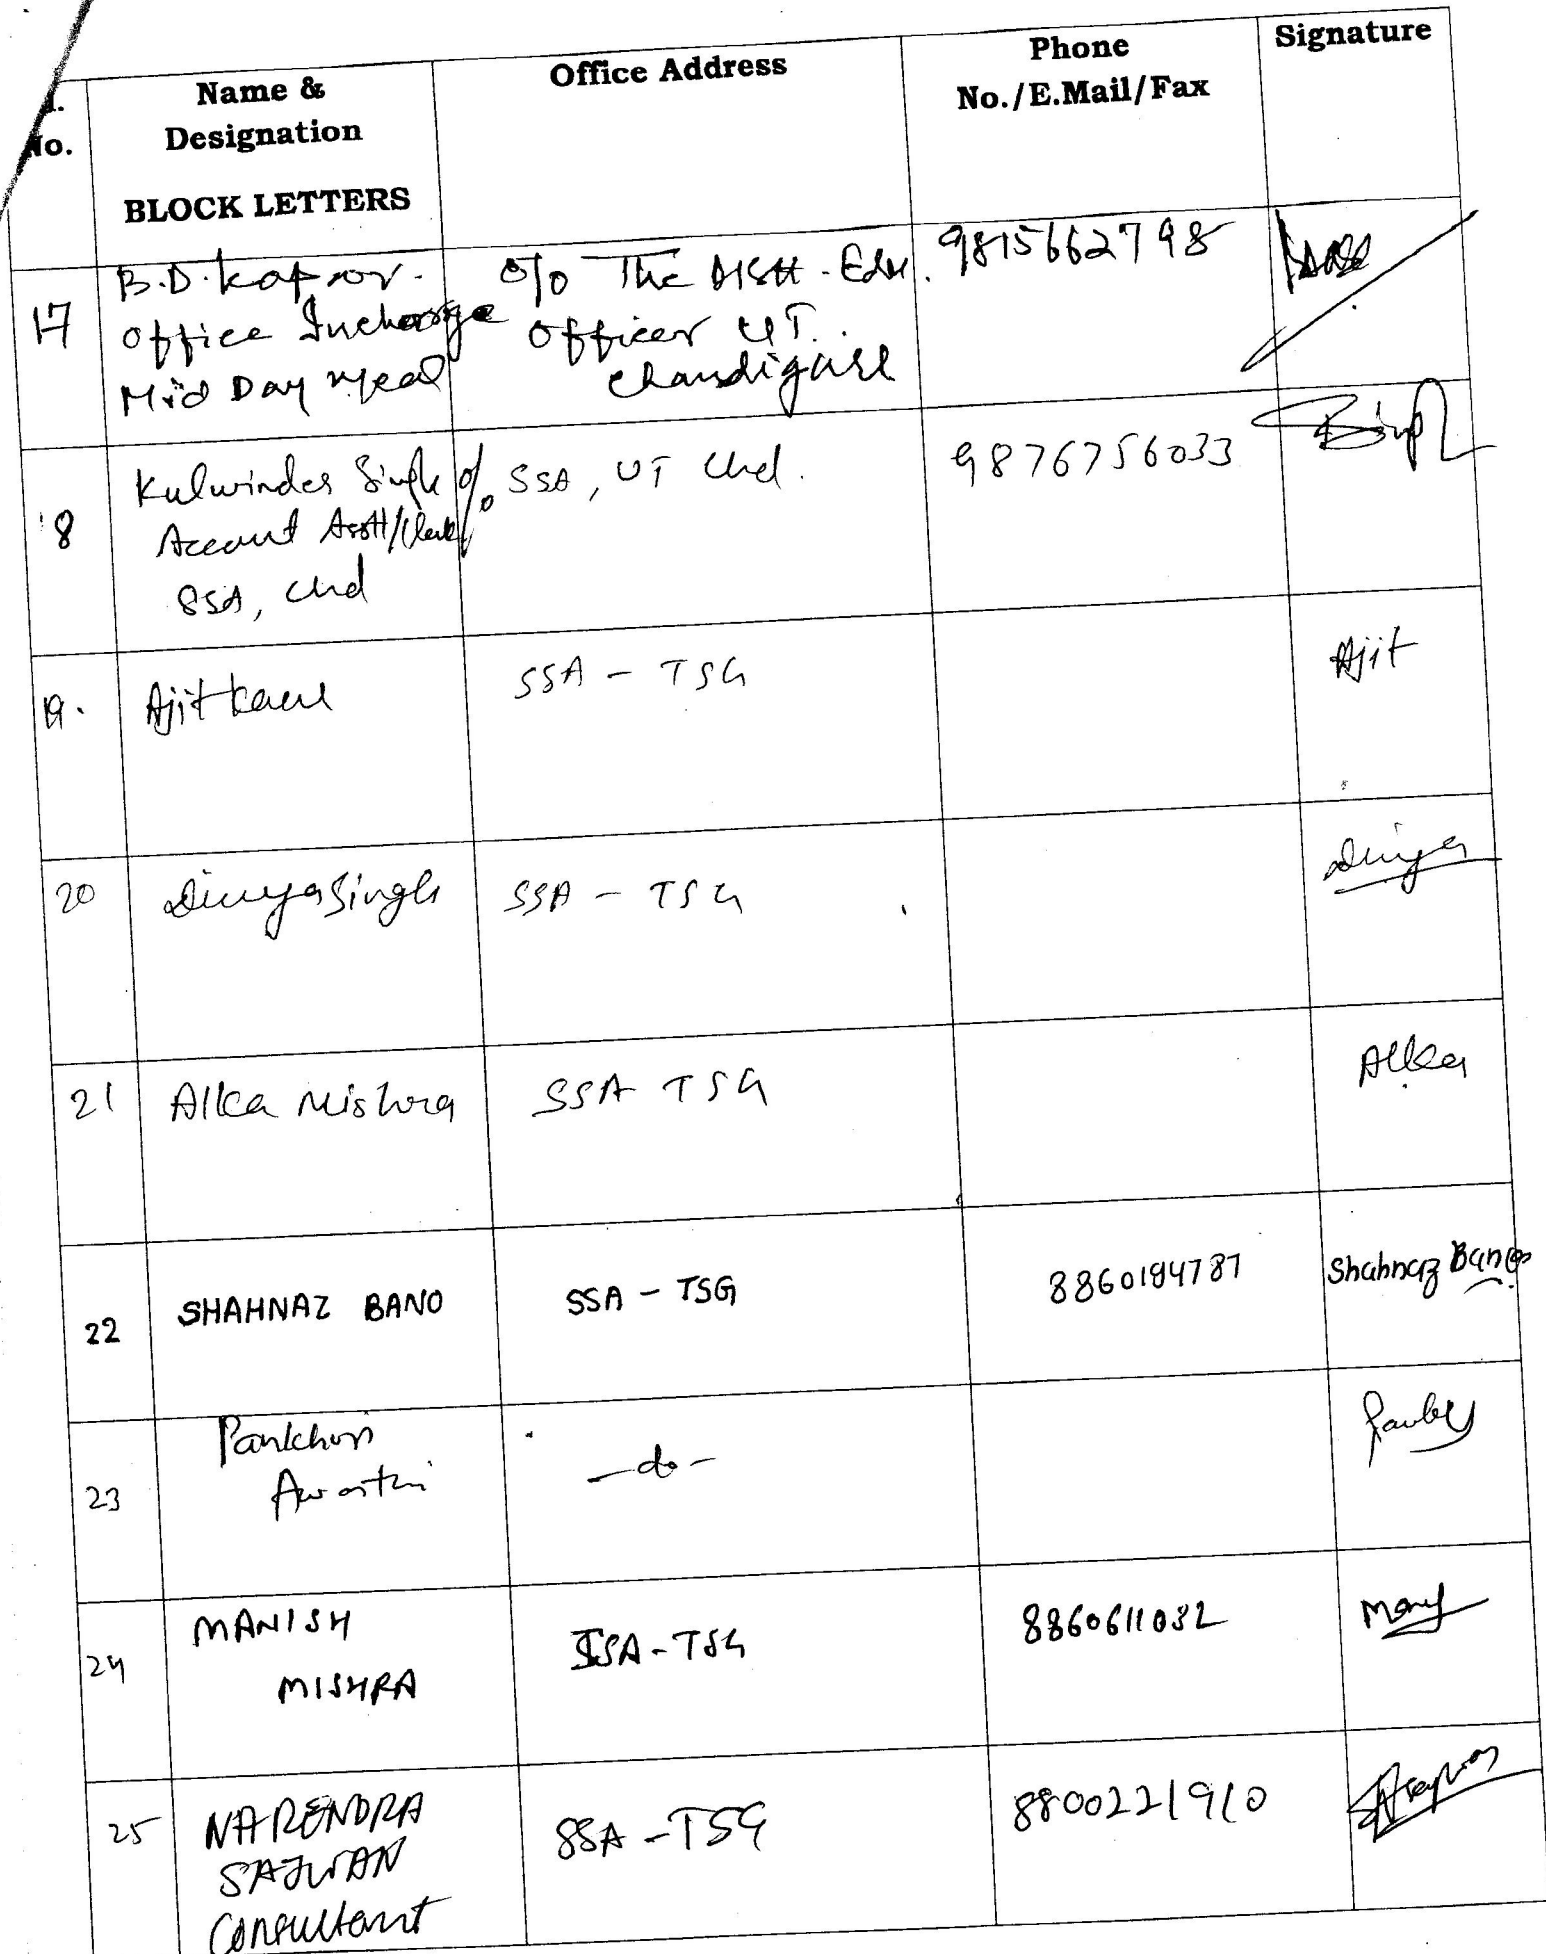 No.
Name &
Designation
BLOCK LETTERS
Office Address
Phone
No./E.Mail/Fax
Signature
17
B.D. Kapoor.
Office Incharge
Mid Day Meal
O/o The Distt. Edu.
Officer UT.
Chandigarh
9815662798
18
Kulwinder Singh
Account Asstt/Clerk
SSA, Chd
O/o SSA, UT Chd.
9876756033
19.
Ajit Kaur
SSA - TSG
Ajit
20
Divya Singh
SSA - TSG
Divya
21
Alka Mishra
SSA TSG
Alka
22
SHAHNAZ BANO
SSA - TSG
8860194787
Shahnaz Bano
23
Pankhuri
Awasthi
- do -
24
MANISH
MISHRA
SSA - TSG
8860611032
25
NARENDRA
SAJWAN
Consultant
SSA - TSG
8800221910